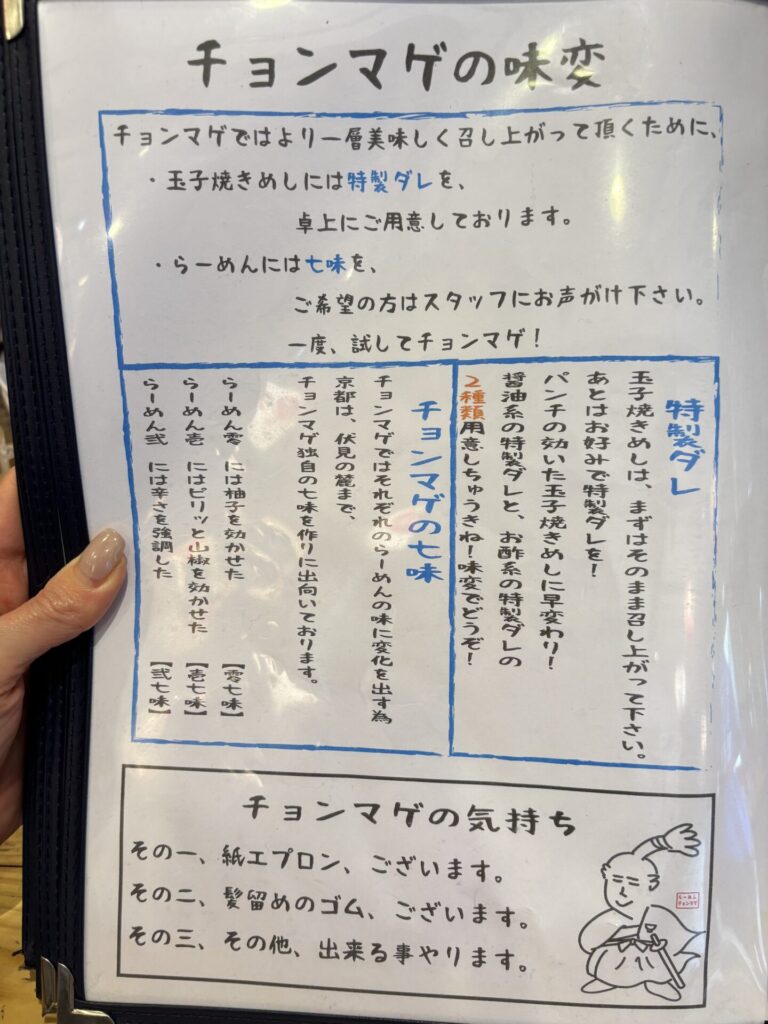 チョンマゲの味変
チョンマゲではより一層美味しく召し上がって頂くために、
・玉子焼きめしには特製ダレを、
卓上にご用意しております。
・らーめんには七味を、
ご希望の方はスタッフにお声がけ下さい。
一度、試してチョンマゲ！
特製ダレ
玉子焼きめしは、まずはそのまま召し上がって下さい。
あとはお好みで特製ダレを！
パンチの効いた玉子焼きめしに早変わり！
醤油系の特製ダレと、お酢系の特製ダレの
２種類用意しちゅうきね！味変でどうぞ！
チョンマゲの七味
チョンマゲではそれぞれのらーめんの味に変化を出す為
京都は、伏見の麓まで、
チョンマゲ独自の七味を作りに出向いております。
らーめん零 には柚子を効かせた 【零七味】
らーめん壱 にはピリッと山椒を効かせた 【壱七味】
らーめん弐 には辛さを強調した 【弐七味】
チョンマゲの気持ち
その一、紙エプロン、ございます。
その二、髪留めのゴム、ございます。
その三、その他、出来る事やります。
らーめん
チョンマゲ